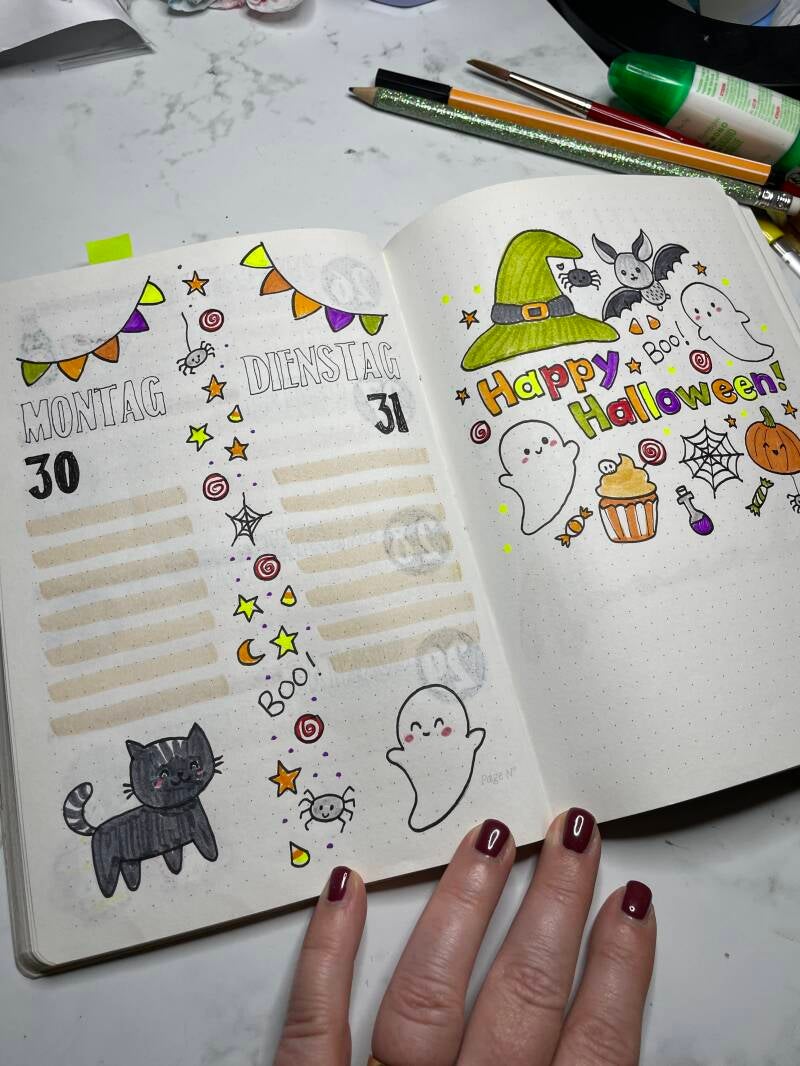 MONTAG
30
DIENSTAG
31
BOO!
Page N°
BOO!
Happy
Halloween!